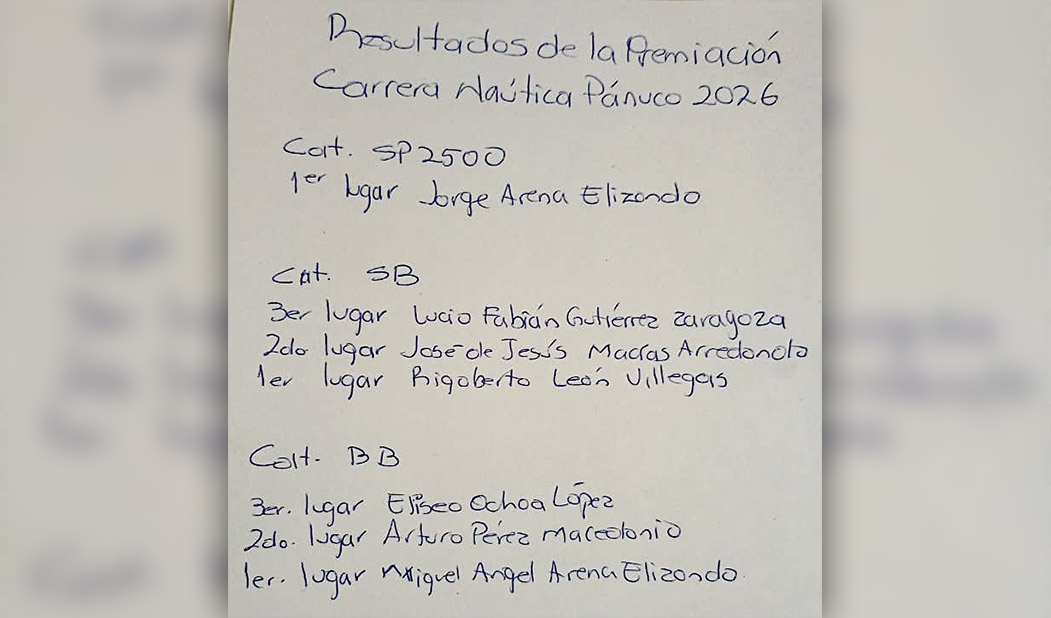 Resultados de la Premiación
Carrera Naútica Pánuco 2026
Cat. SP2500
1er lugar Jorge Arena Elizondo
Cat. SB
3er lugar Lucio Fabián Gutiérrez Zaragoza
2do lugar José de Jesús Macías Arredondo
1er lugar Rigoberto León Villegas
Cat. BB
3er. lugar Eliseo Ochoa López
2do. lugar Arturo Pérez Macedonio
1er. lugar Miguel Angel Arena Elizondo.